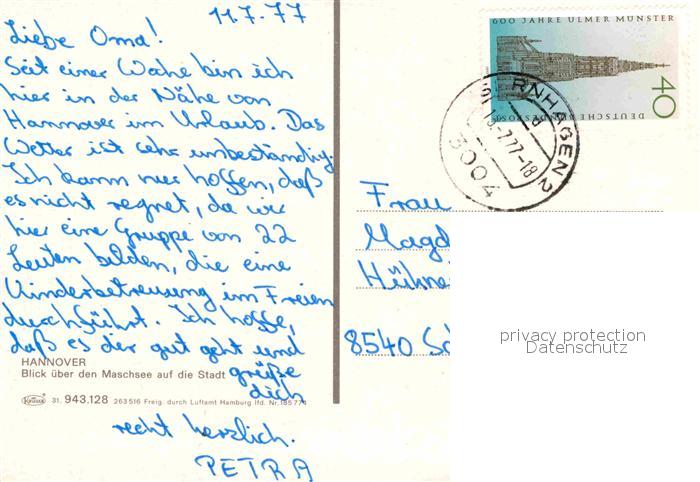 11.7.77
Liebe Oma!
Seit einer Woche bin ich
hier in der Nähe von
Hannover im Urlaub. Das
Wetter ist sehr unbeständig.
Ich kann nur hoffen, daß
es nicht regnet, da wir
hier eine Gruppe von 22
Leuten bilden, die eine
Kinderbetreuung im Freien
durchführt. Ich hoffe,
daß es der gut geht und
grüße
dich
recht herzlich.
PETRA
HANNOVER
Blick über den Maschsee auf die Stadt
Krüger 31. 943.128 263516 Freig. durch Luftamt Hamburg lfd. Nr. 185774
600 JAHRE ULMER MÜNSTER
DEUTSCHE BUNDESPOST
40
RNHAGEN 2
13.-7.77-18
3004
Frau
Magd
Hühne
8540 Sc
privacy protection
Datenschutz